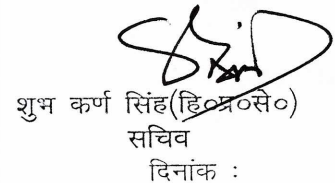 शुभ कर्ण सिंह(हि०प्र०से०)
सचिव
दिनांक :